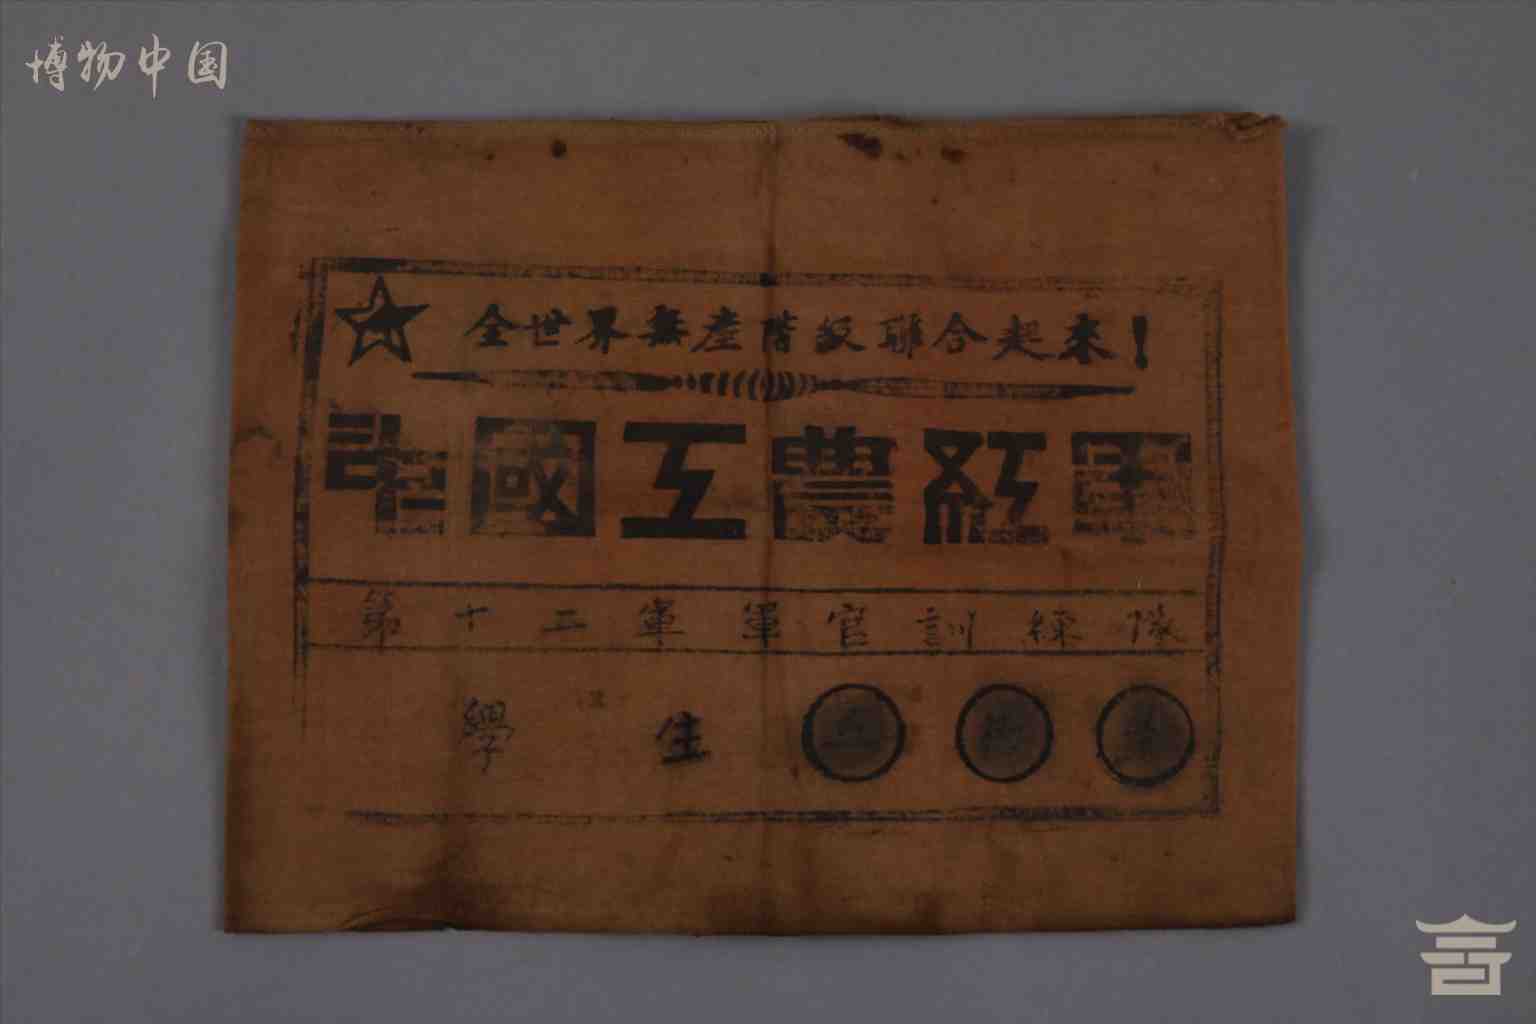 博物中国
全世界無產階級聯合起來！
中國工農紅軍
第十二軍軍官訓練隊
學生